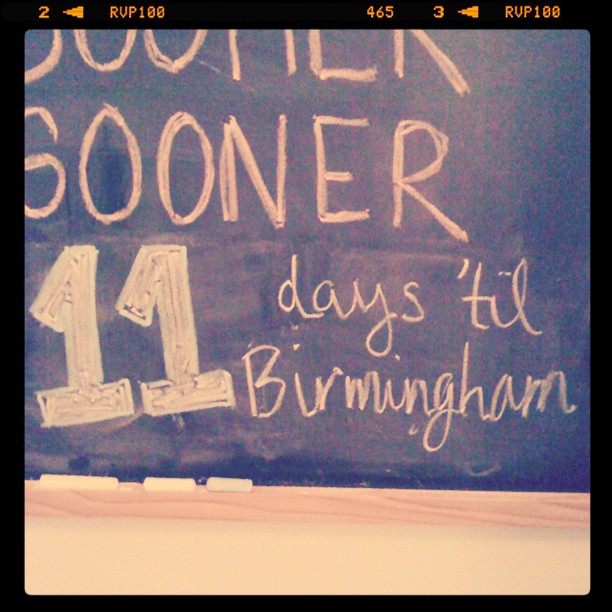 2 RVP100 465 3 RVP100
SOONER
SOONER
11 days 'til
Birmingham